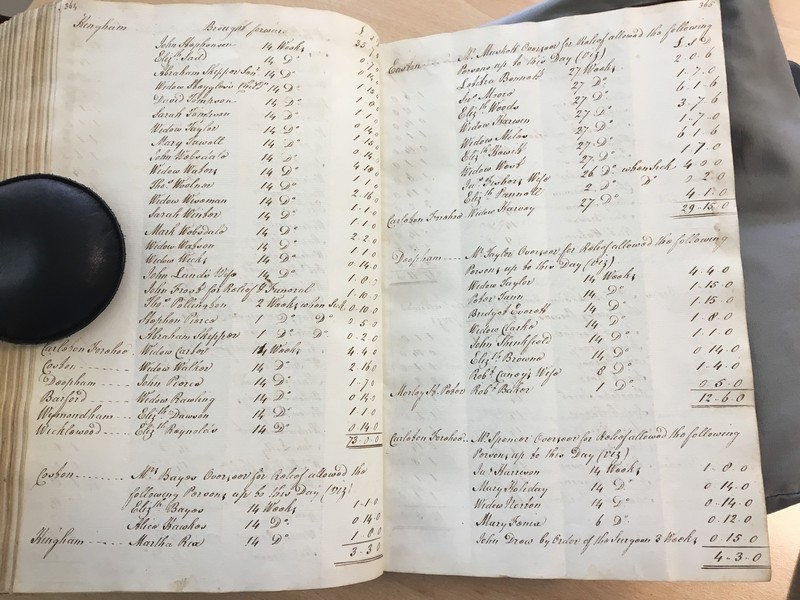 364
Hingham Brought forward £ s d
John Stephenson 14 Weeks
Eliz:th 14 Do
Abraham Skipper Sen:r 14 Do
Widow 14 Do
David Timpson 14 Do
Sarah Timpson 14 Do
Widow Taylor 14 Do
Mary Sewell 14 Do
John Wobsdale 14 Do
Widow Waters 14 Do
Tho:s Woolnor 14 Do 1-1-0
Widow Wiseman 14 Do 2-16-0
Sarah Winter 14 Do 1-1-0
Mark Wobsdale 14 Do 1-1-0
Widow Watson 14 Do 2-2-0
Widow Wick 14 Do 1-1-0
John Lands Wife 14 Do 0-14-0
John Frost for Relief & Funeral
Tho:s 2 Weeks when Sick 0-10-0
Stephen Pierce 1 Do Do 0-5-0
Abraham Skipper 1 Do Do 0-2-0
Carleton Forehoe Widow Carter 14 Weeks 4-4-0
Coston Widow Walker 14 Do 2-16-0
Deopham John Pierce 14 Do 1-7-0
Barford Widow Rawling 14 Do 0-14-0
Wymondham Eliz:th Dawson 14 Do 1-1-0
Wicklewood Eliz:th Reynolds 14 Do 0-14-0
73-0-0
Coston Mr. Bayes Overseer for Relief allowed the
following Persons up to this Day (Viz)
Eliz:th Bayes 14 Weeks 1-1-0
Alice Hawkes 14 Do 0-14-0
Hingham Martha Rix 14 Do 1-8-0
3-3-0
365
Easton Mr. Muskett Overseer for Relief allowed the following
Persons up to this Day (Viz) £ s d
Letitia Bennett 27 Weeks 2-0-6
Jno. Moore 27 Do 1-7-0
Eliz:th Woods 27 Do 6-1-6
Widow Harwin 27 Do
Widow 27 Do 3-7-6
Eliz:th Howett 27 Do 1-7-0
Widow West 27 Do 6-1-6
Jas. Fishers Wife 26 Do when Sick 1-7-0
Eliz:th Pannell 2 Do Do 4-0-0
Carleton Forehoe Widow Harvey 27 Do 0-2-0
4-1-0
29-15-0
Deopham Mr. Taylor Overseer for Relief allowed the following
Persons up to this Day (Viz)
Widow Taylor 14 Weeks 4-4-0
Peter Tann 14 Do 1-15-0
Bridget Everett 14 Do 1-15-0
Widow Clarke 14 Do 1-8-0
John 14 Do 1-1-0
Eliz:th Browne 14 Do 0-14-0
Rob:t Wife 8 Do 1-4-0
Morley St. Peter Rob:t Baker 1 Do 0-5-0
12-6-0
Carleton Forehoe Mr. Spencer Overseer for Relief allowed the following
Persons up to this Day (Viz)
Jno. Harrison 14 Weeks 1-8-0
Mary Holiday 14 Do 0-14-0
Widow Norton 14 Do 0-14-0
Mary 6 Do 0-12-0
John Drew by Order of the Surgeon 3 Weeks 0-15-0
4-3-0